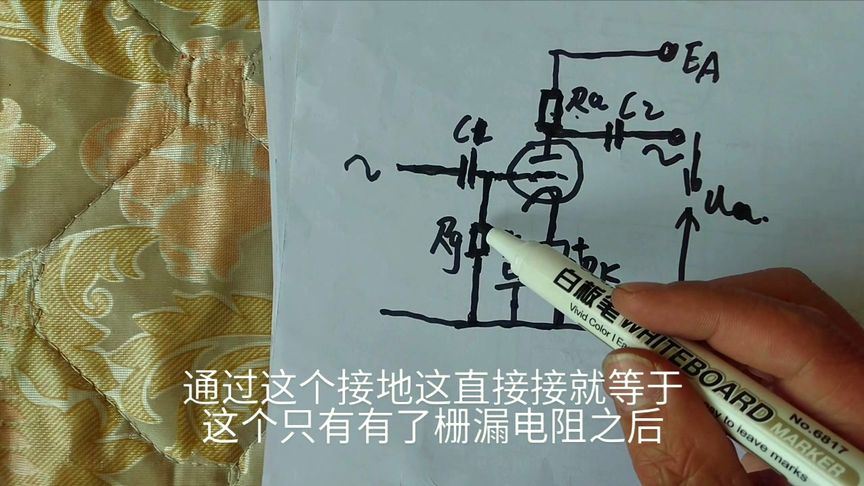 EA
Ra
C2
C1
~
~
Ua.
Rg
白板笔 WHITEBOARD
MARKER
Vivid Color | Ea
No.6817
y to leave marks
通过这个接地这直接接就等于
这个只有有了栅漏电阻之后